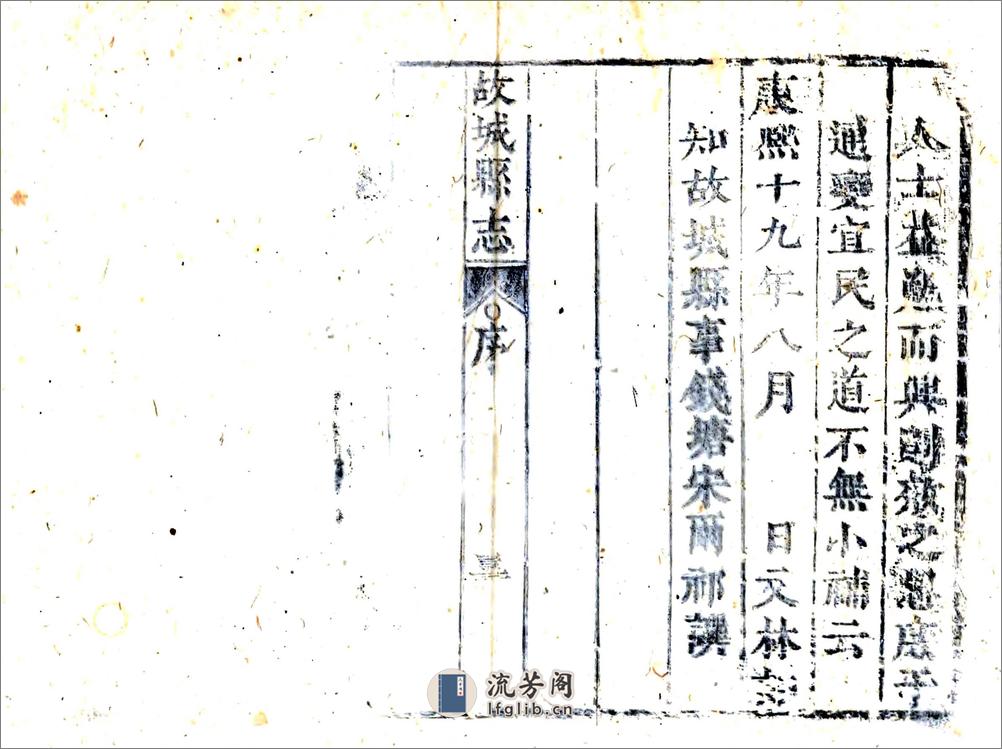 人士而興創之思庶乎
通變宜民之道不無小補云
康熙十九年八月　日文林郎
知故城縣事錢塘宋爾祁譔
故城縣志　序　三
流芳阁
lfglib.cn